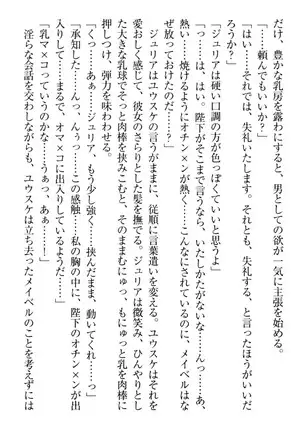 だけ、豊かな乳房を露わにすると、男としての欲が一気に主張を始める。
「……頼んでもいいか？」
「はい……それでは、失礼いたします。それとも、失礼する、と言ったほうがいいだ
ろうか？」
「ジュリアは硬い口調の方が色っぽくていいと思うよ」
「っ……は、はい。陛下がそこまで言うなら、いたしかたがないな……んっ……あ、
熱い……焼けるようにオチン×ンが熱く……こんなになるまで、メイベルはなんで
ぜ放っておけるのだ……？」
　ジュリアはユウスケの言うがままに、従順に言葉遣いを変える。ユウスケはそれを
愛おしく感じて、彼女のさらりとした髪を撫でる。ジュリアは微笑み、ひんやりとし
た大きな乳球でそっと肉棒を挟みこむと、そのままむにゅっ、もにゅっと乳を肉棒に
押しつけ、弾力を味わわせる。
「くっ……あぁ……ジュリア、もう少し強く……挟んだまま、動いてくれ……っ」
「承知した……んっ、んぅっ……この感触……私の胸の中に、陛下のオチン×ンが出
入りして……まるで、オマ×コに出入りしているようだ……」
「乳マ×コっていうのかな……うぁっ、ああぁっ……！」
　淫らな会話を交わしながらも、ユウスケは立ち去ったメイベルのことを考えずには